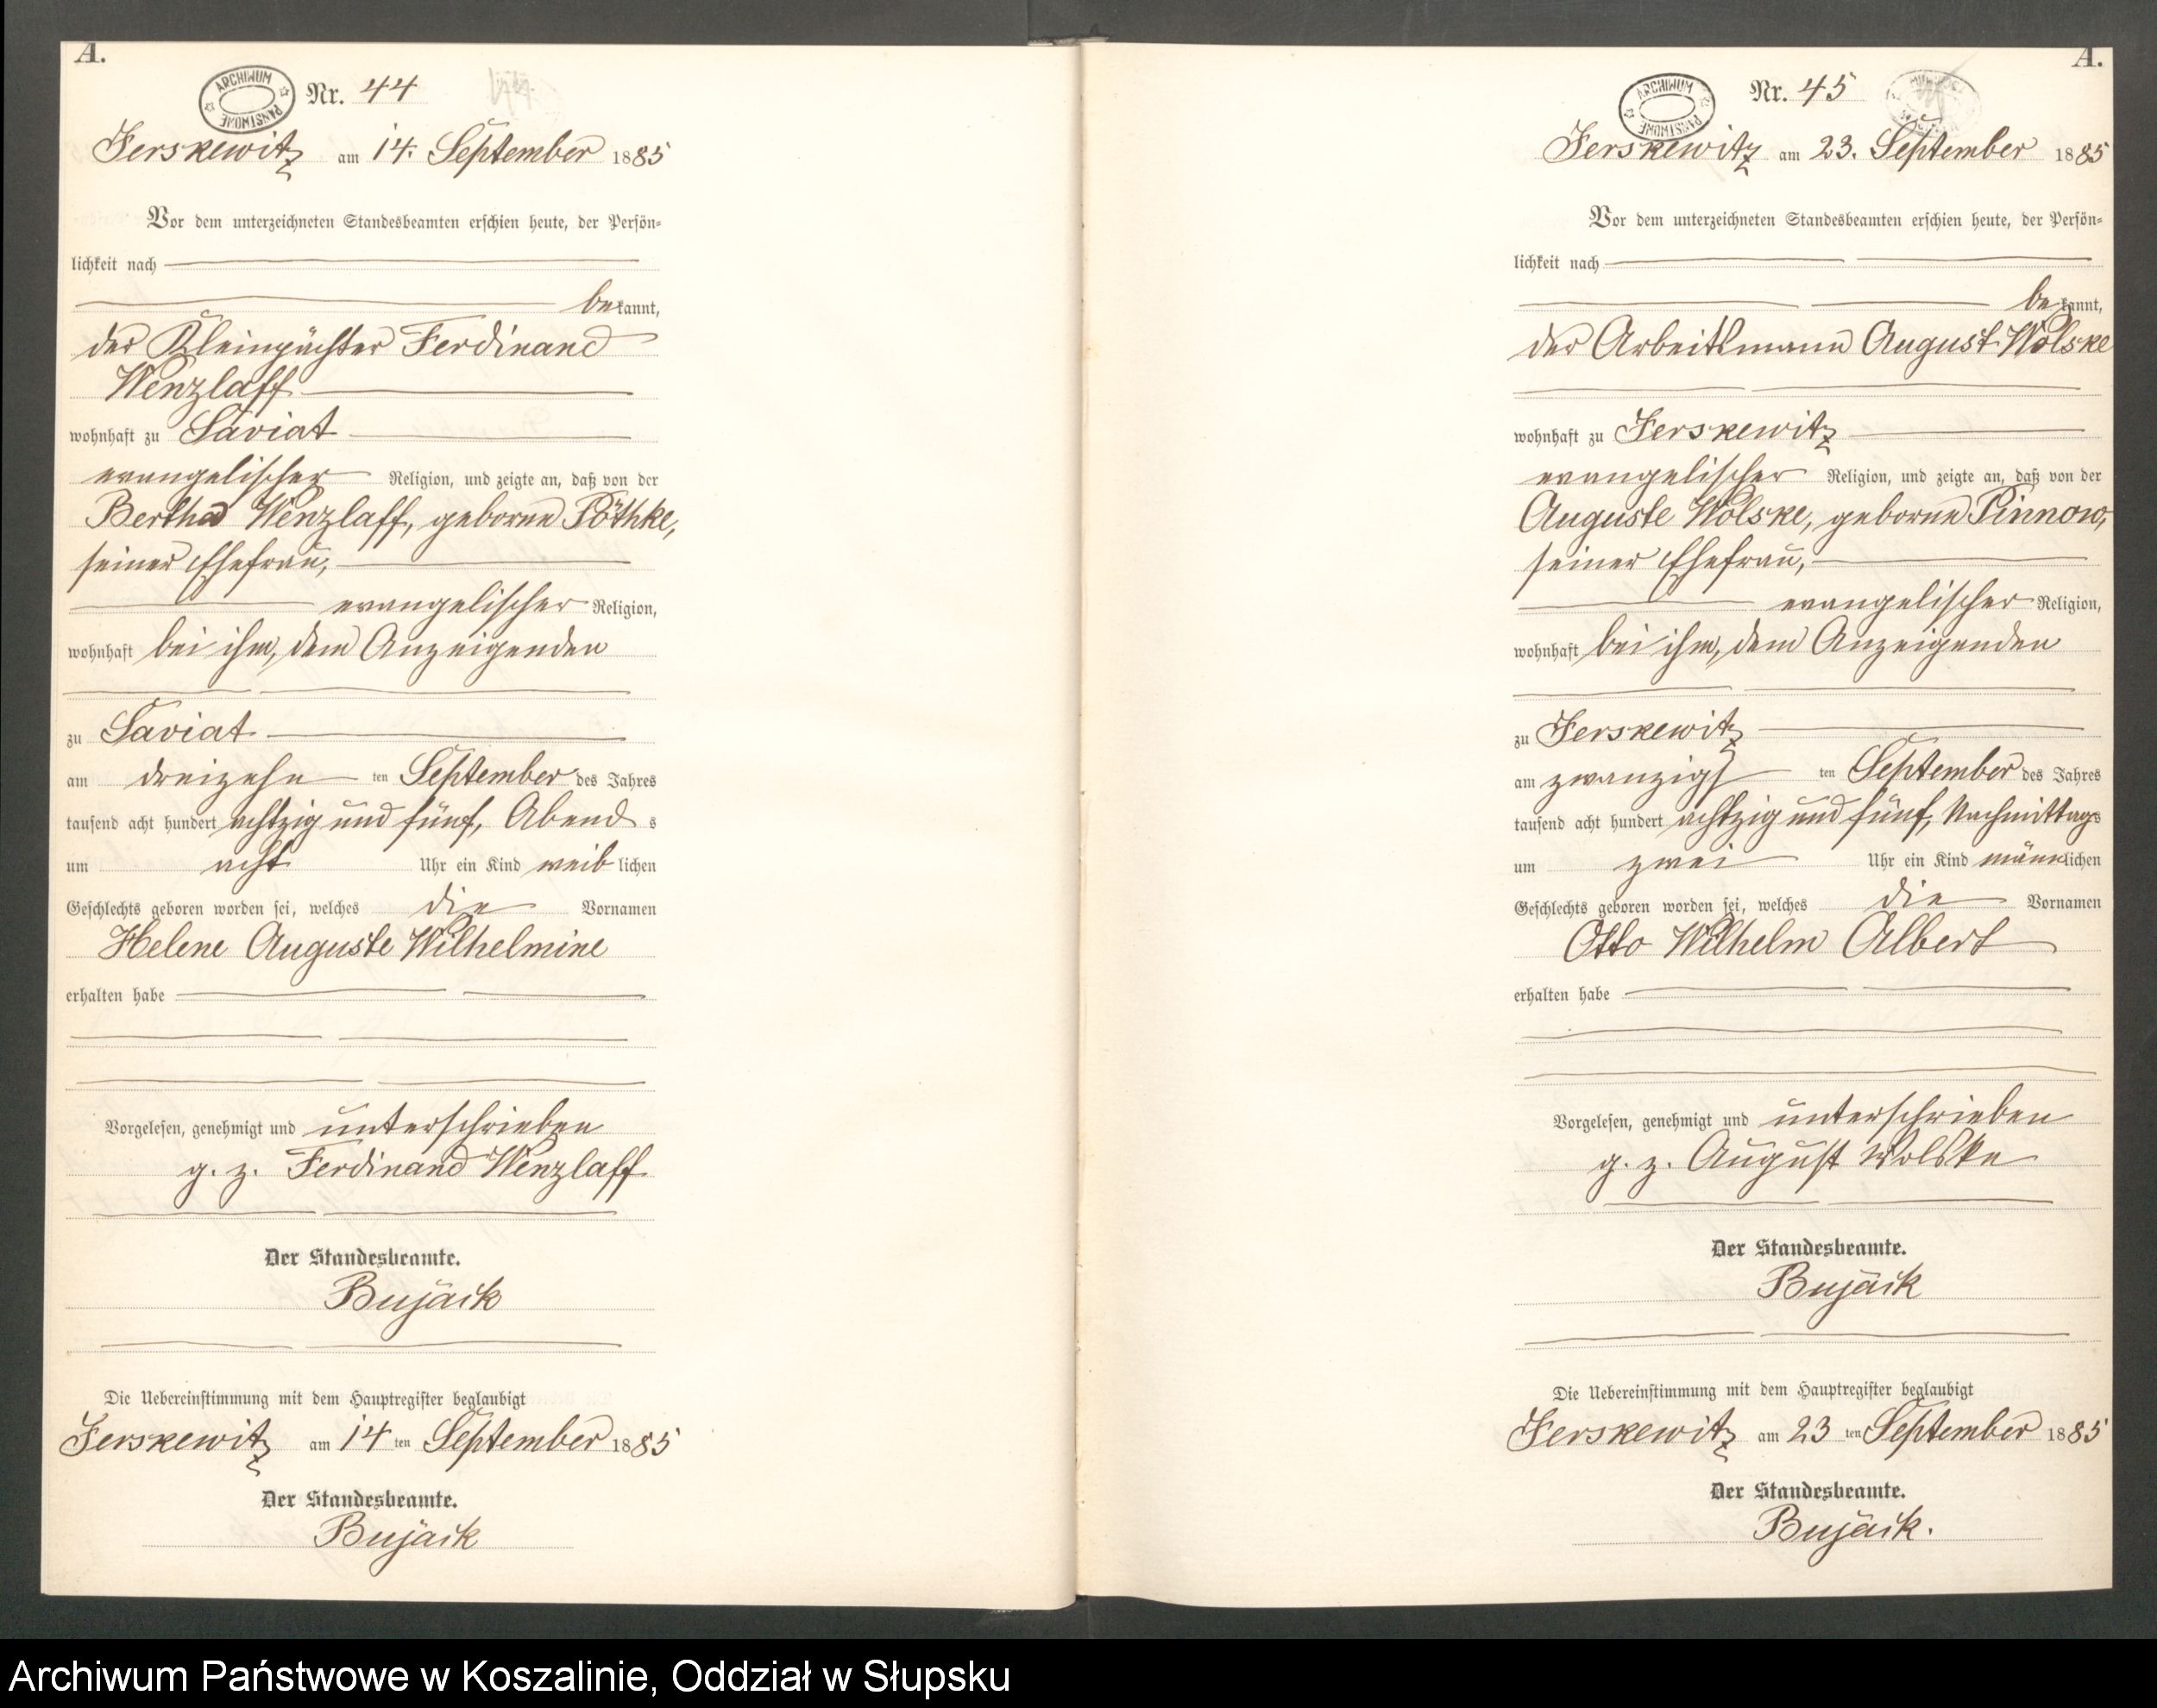 A.
ARCHIWUM PAŃSTWOWE
Nr. 44
Jerskewitz am 14. September 1885
Vor dem unterzeichneten Standesbeamten erschien heute, der Persön-
lichkeit nach
bekannt,
der Kleinpächter Ferdinand
Wenzlaff
wohnhaft zu Saviat
evangelischer Religion, und zeigte an, daß von der
Bertha Wenzlaff, geborne Pöthke,
seiner Ehefrau,
evangelischer Religion,
wohnhaft bei ihm, dem Anzeigenden
zu Saviat
am dreizehn ten September des Jahres
tausend acht hundert achtzig und fünf, Abends
um acht Uhr ein Kind weiblichen
Geschlechts geboren worden sei, welches die Vornamen
Helene Auguste Wilhelmine
erhalten habe
Vorgelesen, genehmigt und unterschrieben
g. z. Ferdinand Wenzlaff
Der Standesbeamte.
Bujack
Die Uebereinstimmung mit dem Hauptregister beglaubigt
Jerskewitz am 14 ten September 1885
Der Standesbeamte.
Bujack
A.
ARCHIWUM PAŃSTWOWE
Nr. 45
Jerskewitz am 23. September 1885
Vor dem unterzeichneten Standesbeamten erschien heute, der Persön-
lichkeit nach
bekannt,
der Arbeitsmann August Wolske
wohnhaft zu Jerskewitz
evangelischer Religion, und zeigte an, daß von der
Auguste Wolske, geborne Pinnow,
seiner Ehefrau,
evangelischer Religion,
wohnhaft bei ihm, dem Anzeigenden
zu Jerskewitz
am zwanzigs ten September des Jahres
tausend acht hundert achtzig und fünf, Nachmittags
um zwei Uhr ein Kind männlichen
Geschlechts geboren worden sei, welches die Vornamen
Otto Wilhelm Albert
erhalten habe
Vorgelesen, genehmigt und unterschrieben
g. z. August Wolske
Der Standesbeamte.
Bujack
Die Uebereinstimmung mit dem Hauptregister beglaubigt
Jerskewitz am 23 ten September 1885
Der Standesbeamte.
Bujack.
Archiwum Państwowe w Koszalinie, Oddział w Słupsku